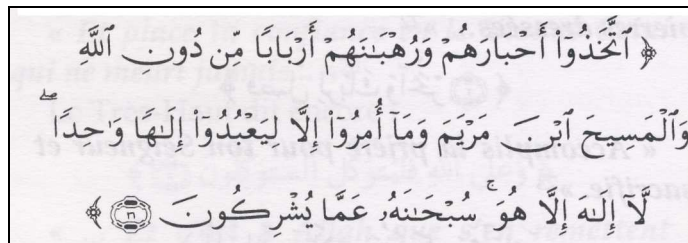 ﴿ ٱتَّخَذُوٓا۟ أَحْبَارَهُمْ وَرُهْبَـٰنَهُمْ أَرْبَابًا مِّن دُونِ ٱللَّهِ
وَٱلْمَسِيحَ ٱبْنَ مَرْيَمَ وَمَآ أُمِرُوٓا۟ إِلَّا لِيَعْبُدُوٓا۟ إِلَـٰهًا وَٰحِدًا ۖ
لَّآ إِلَـٰهَ إِلَّا هُوَ ۚ سُبْحَـٰنَهُۥ عَمَّا يُشْرِكُونَ ﴿٣١﴾ ﴾